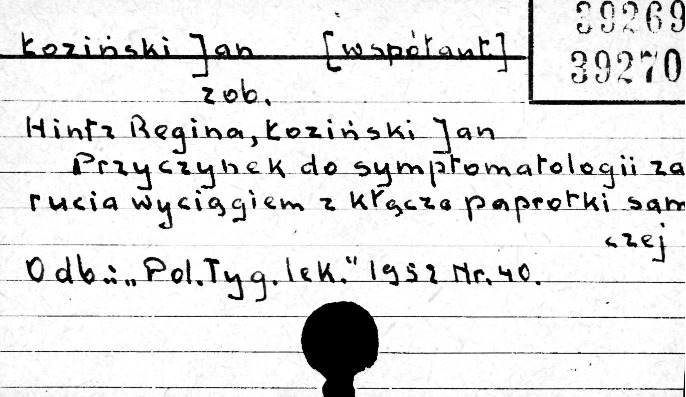 39269
Łoziński Jan [współaut]
39270
zob.
Hintz Regina, Łoziński Jan
Przyczynek do symptomatologii za
rucia wyciągiem z kłącza paprotki sam
czej
Odb.: „Pol. Tyg. lek." 1952 Nr. 40.